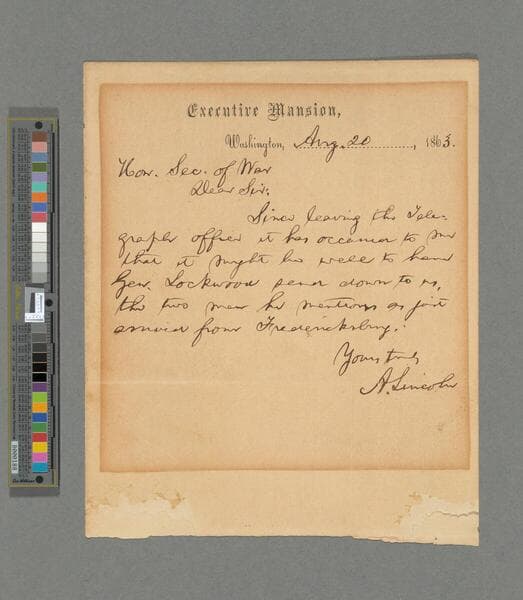 Executive Mansion,
Washington, Aug. 20, 1863.
Hon. Sec. of War
Dear Sir.
Since leaving the Tele-
graph office it has occurred to me
that it might be well to have
Gen. Lockwood send down to us,
the two men he mentions as just
arrived from Fredericksburg.
Yours truly
A. Lincoln